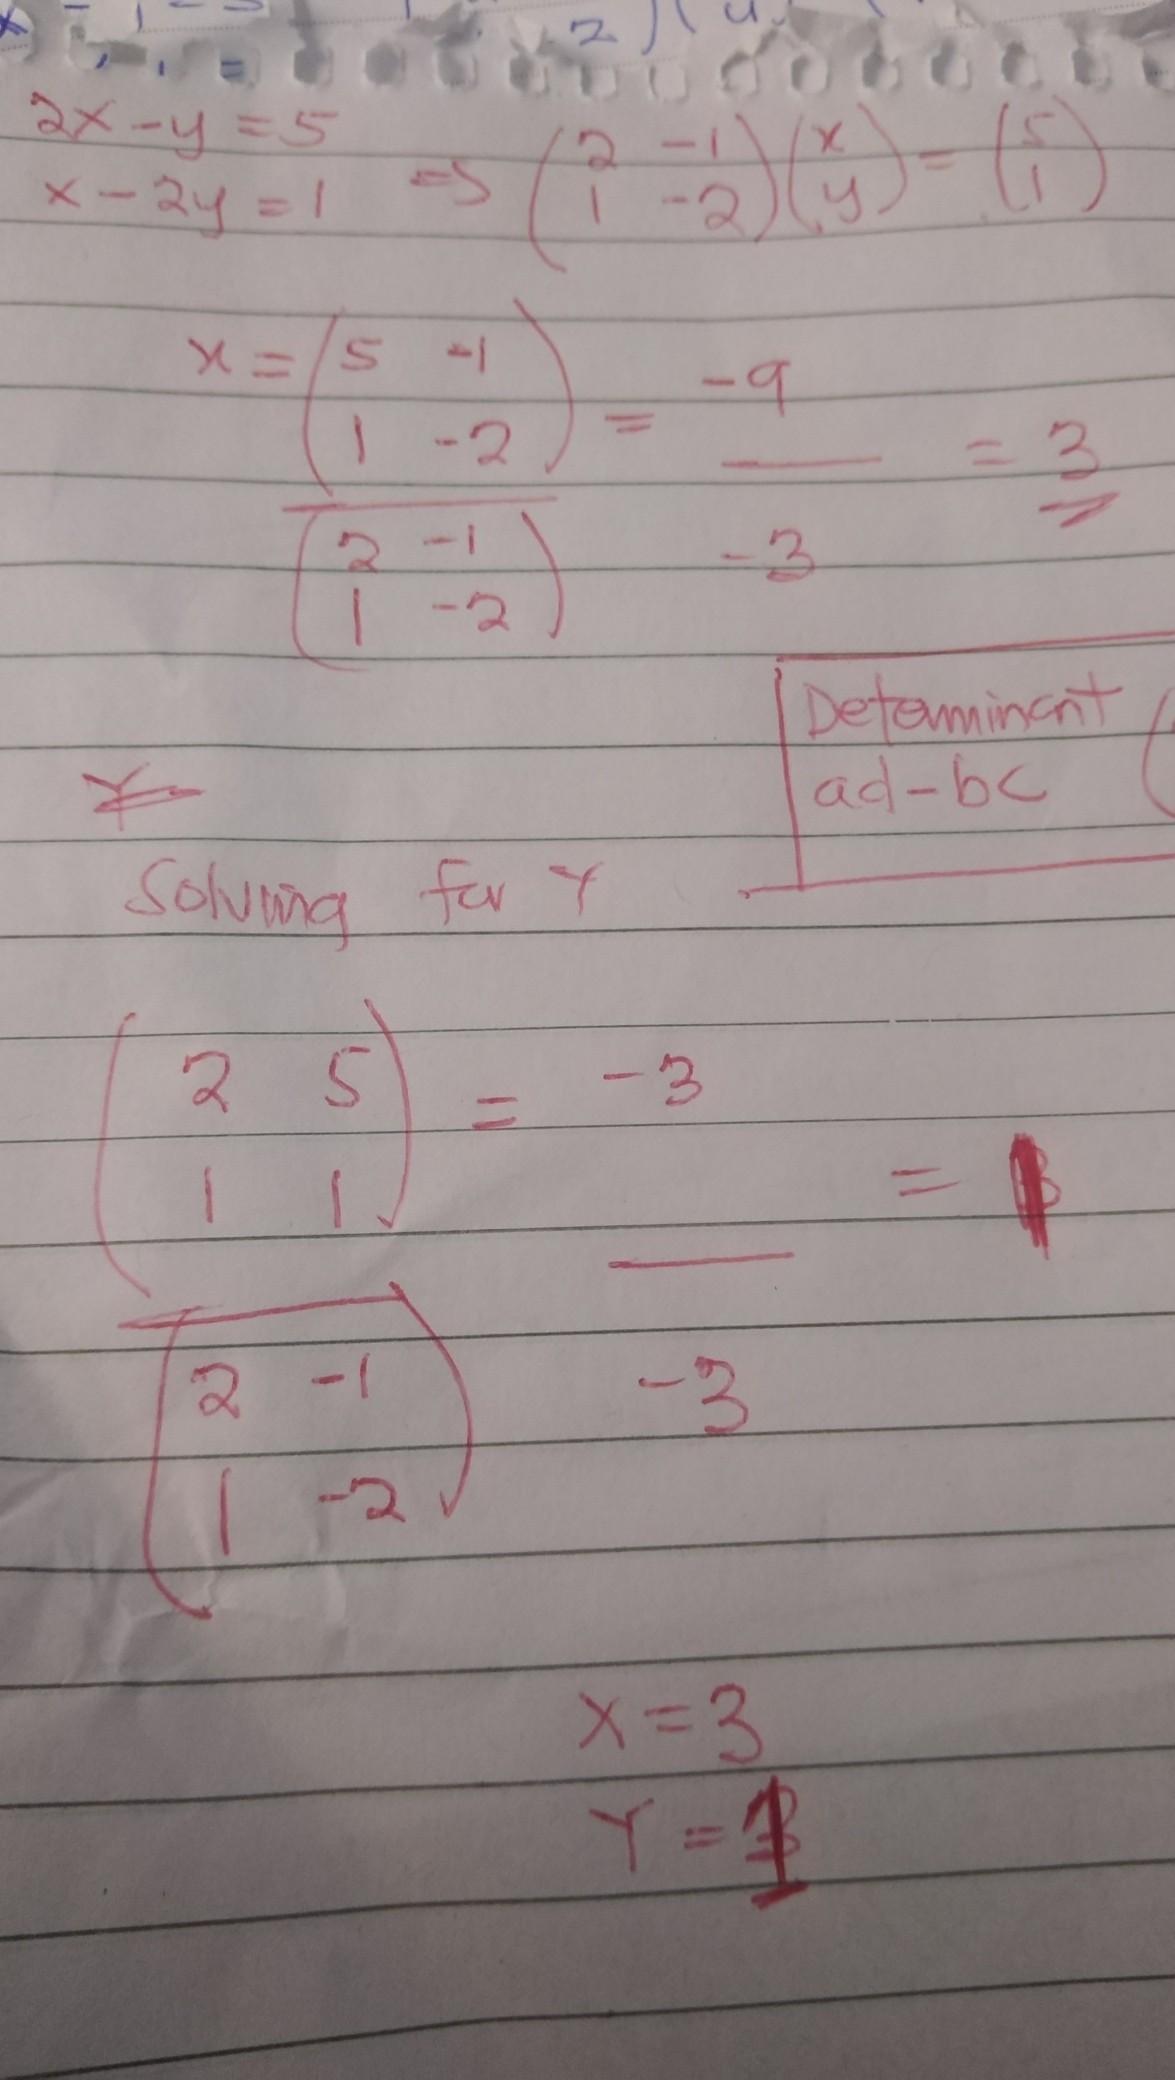 2x-y=5
x-2y=1 => (2 -1
1 -2)(x
y) = (5
1)
x = (5 -1
1 -2) = -9
= 3
(2 -1
1 -2) -3
Determinant
ad-bc
Solving for Y
(2 5
1 1) = -3
= 1
(2 -1
1 -2) -3
X=3
Y=1